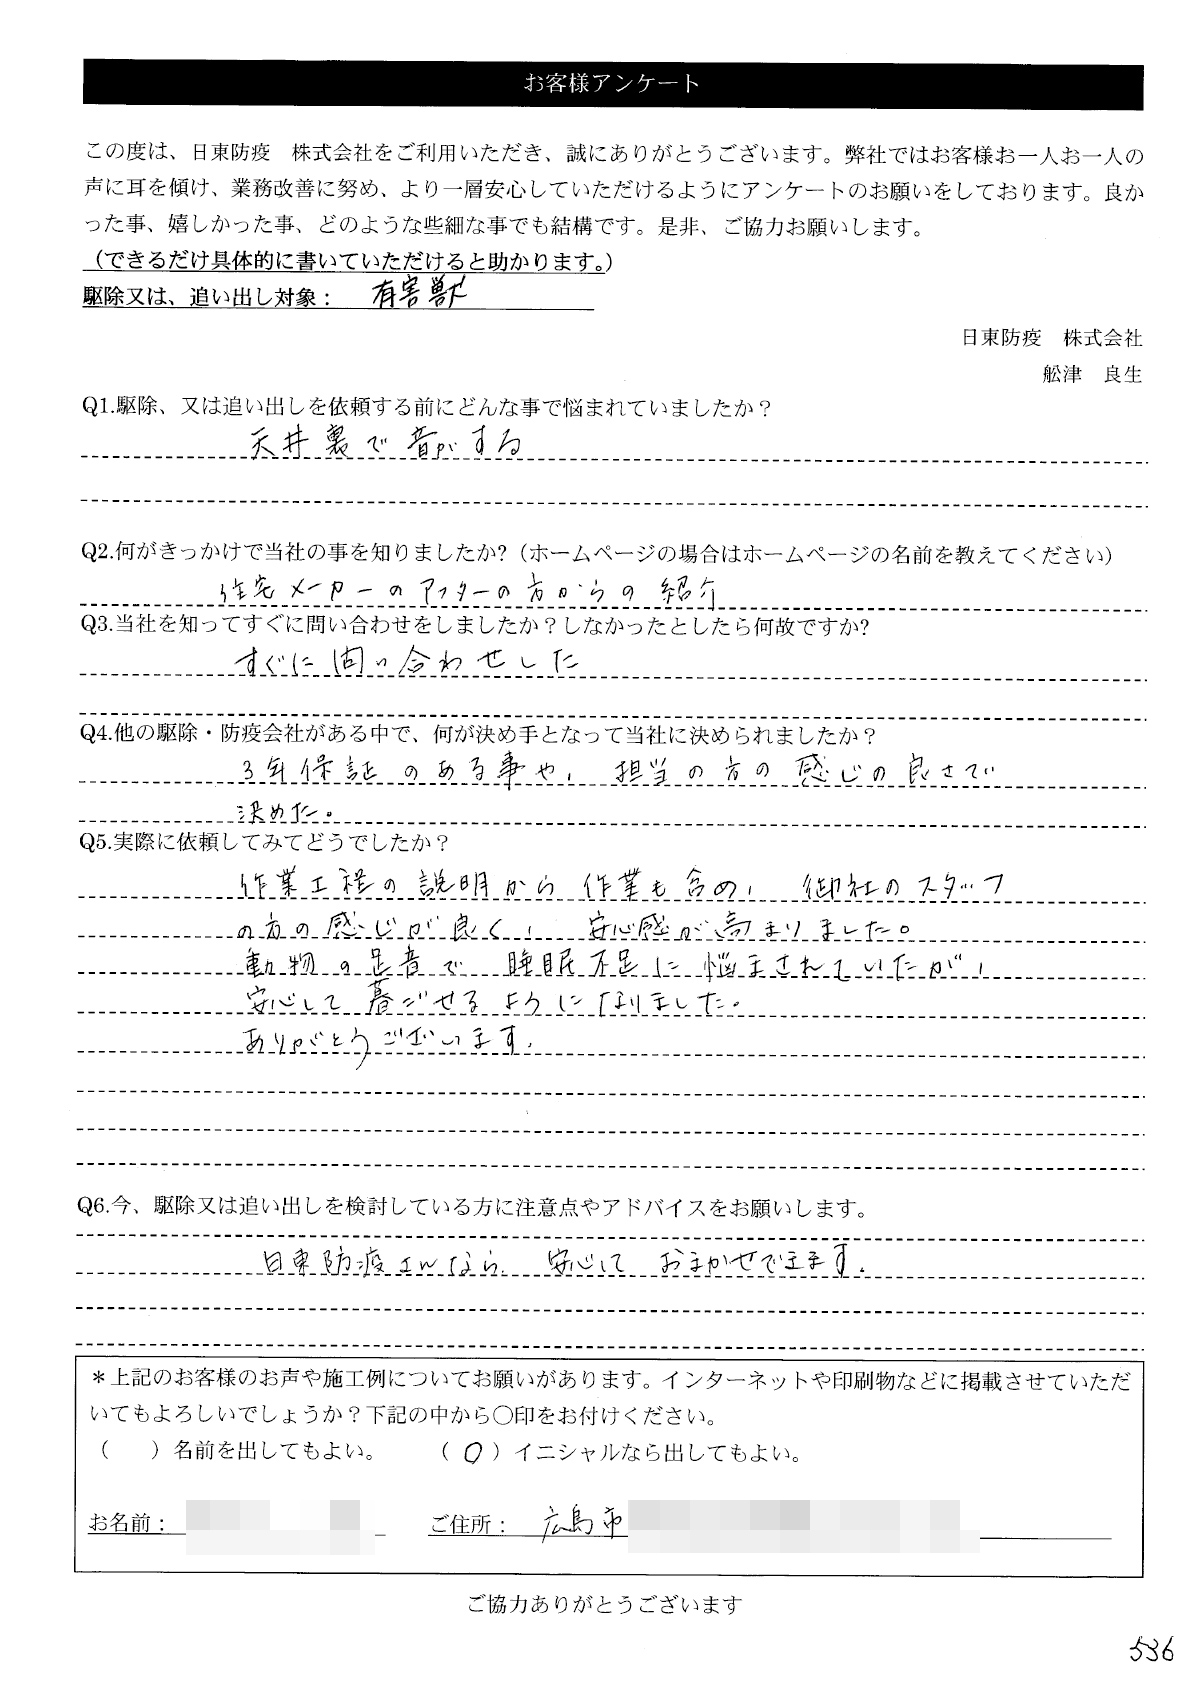 お客様アンケート
この度は、日東防疫　株式会社をご利用いただき、誠にありがとうございます。弊社ではお客様お一人お一人の
声に耳を傾け、業務改善に努め、より一層安心していただけるようにアンケートのお願いをしております。良か
った事、嬉しかった事、どのような些細な事でも結構です。是非、ご協力お願いします。
（できるだけ具体的に書いていただけると助かります。）
駆除又は、追い出し対象： 有害獣
日東防疫　株式会社
舩津　良生
Q1.駆除、又は追い出しを依頼する前にどんな事で悩まれていましたか？
天井裏で音がする
Q2.何がきっかけで当社の事を知りましたか?（ホームページの場合はホームページの名前を教えてください）
住宅メーカーのアフターの方からの紹介
Q3.当社を知ってすぐに問い合わせをしましたか？しなかったとしたら何故ですか?
すぐに問い合わせした
Q4.他の駆除・防疫会社がある中で、何が決め手となって当社に決められましたか？
3年保証のある事や、担当の方の感じの良さで
決めた。
Q5.実際に依頼してみてどうでしたか？
作業工程の説明から作業も含め、御社のスタッフ
の方の感じが良く、安心感が高まりました。
動物の足音で睡眠不足に悩まされていたが、
安心して暮ごせるようになりました。
ありがとうございます.
Q6.今、駆除又は追い出しを検討している方に注意点やアドバイスをお願いします。
日東防疫さんなら、安心しておまかせできます.
＊上記のお客様のお声や施工例についてお願いがあります。インターネットや印刷物などに掲載させていただ
いてもよろしいでしょうか？下記の中から〇印をお付けください。
（　　）名前を出してもよい。　　（ 〇 ）イニシャルなら出してもよい。
お名前：　　ご住所： 広島市
ご協力ありがとうございます
536